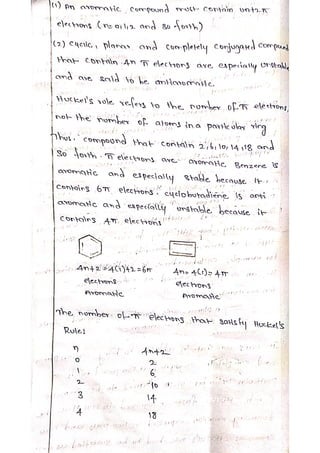 (1) An aromatic compound must contain 4n+2 π
electrons (n=0,1,2 and so forth)
(2) cyclic, planar and completely conjugated compound
that contain 4n π electrons are especially unstable
and are said to be antiaromatic.
Huckel's rule refers to the number of π electrons,
not the number of atoms in a particular ring
Thus compound that contain 2,6,10,14,18 and
so forth π electrons are aromatic. Benzene is
aromatic and especially stable because it
contains 6π electrons. cyclobutadiene is anti
aromatic and especially unstable because it
contains 4π electrons
4n+2 = 4(1)+2 = 6π 4n = 4(1) = 4π
electrons electrons
Aromatic Aromatic
The number of π electrons that satisfy Huckel's
Rule:
n 4n+2
0 2
1 6
2 10
3 14
4 18